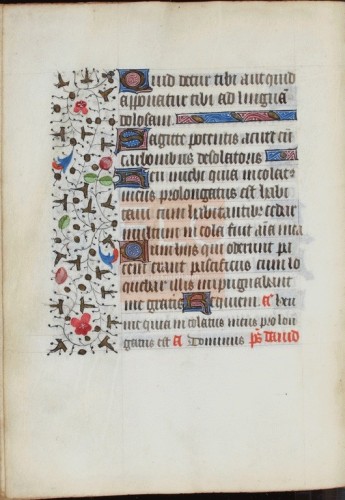 Quid detur tibi aut quid
apponatur tibi ad linguā
dolosam.
Sagitte potentis acute cū
carbonibus desolatoriis
Heu michi quia incolat
meus prolongatus est habi
taui cum habitantibꝫ cedar
multum incola fuit aīa mea
Cum hiis qui oderunt pa
cem eram pacificus cum lo
quebar illis impugnabant
me gratis Requiem. a Heu
me quia incolatus meus prolon
gatus est a Dominus ps dauid